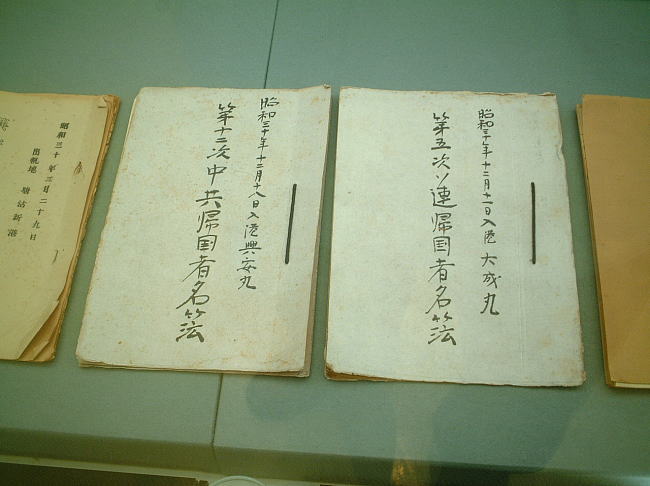 昭和三十年十二月十一日入港 大成丸
第五次ソ連帰国者名簿
昭和三十年十二月十八日入港興安丸
第十二次中共帰国者名簿
昭和三十年三月二十九日
出帆地 塘沽新港